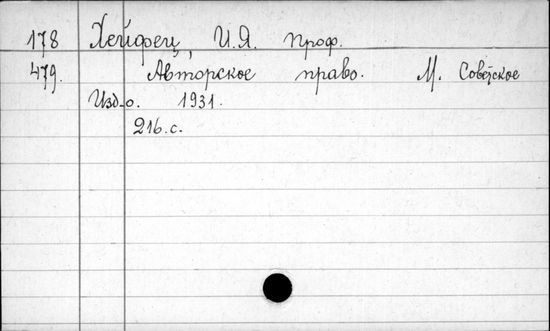 178 Хейфец, И.Я. проф.
479. Авторское право. М. Советское
Изд-о. 1931.
216.с.